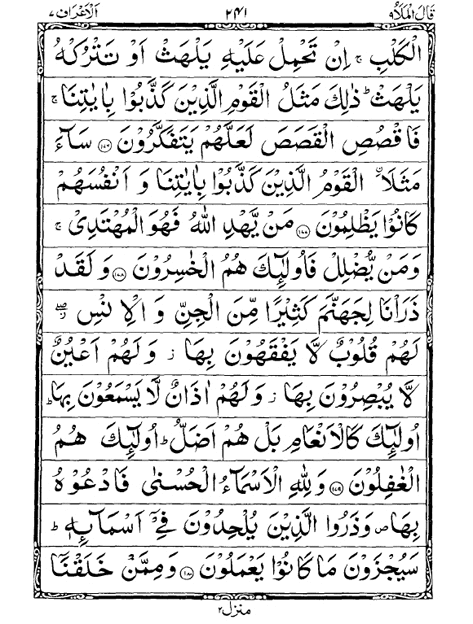 قَالَ الْمَلَاُ ٩ ٢٤١ اَلْاَعْرَاف ٧
الْكَلْبِ ۚ اِنْ تَحْمِلْ عَلَيْهِ يَلْهَثْ اَوْ تَتْرُكْهُ
يَلْهَثْ ؕ ذٰلِكَ مَثَلُ الْقَوْمِ الَّذِيْنَ كَذَّبُوْا بِاٰيٰتِنَا ۚ
فَاقْصُصِ الْقَصَصَ لَعَلَّهُمْ يَتَفَكَّرُوْنَ ﴿۱۷۶﴾ سَآءَ
مَثَلَاْ ۨالْقَوْمُ الَّذِيْنَ كَذَّبُوْا بِاٰيٰتِنَا وَ اَنْفُسَهُمْ
كَانُوْا يَظْلِمُوْنَ ﴿۱۷۷﴾ مَنْ يَّهْدِ اللّٰهُ فَهُوَ الْمُهْتَدِيْ ۚ
وَمَنْ يُّضْلِلْ فَاُولٰٓئِكَ هُمُ الْخٰسِرُوْنَ ﴿۱۷۸﴾ وَ لَقَدْ
ذَرَاْنَا لِجَهَنَّمَ كَثِيْرًا مِّنَ الْجِنِّ وَ الْاِنْسِ ۖ ز
لَهُمْ قُلُوْبٌ لَّا يَفْقَهُوْنَ بِهَا ز وَ لَهُمْ اَعْيُنٌ
لَّا يُبْصِرُوْنَ بِهَا ز وَ لَهُمْ اٰذَانٌ لَّا يَسْمَعُوْنَ بِهَا ؕ
اُولٰٓئِكَ كَالْاَنْعَامِ بَلْ هُمْ اَضَلُّ ؕ اُولٰٓئِكَ هُمُ
الْغٰفِلُوْنَ ﴿۱۷۹﴾ وَ لِلّٰهِ الْاَسْمَآءُ الْحُسْنٰى فَادْعُوْهُ
بِهَا ۪ وَذَرُوا الَّذِيْنَ يُلْحِدُوْنَ فِيْۤ اَسْمَآئِهٖ ؕ
سَيُجْزَوْنَ مَا كَانُوْا يَعْمَلُوْنَ ﴿۱۸۰﴾ وَمِمَّنْ خَلَقْنَاۤ
منزل ٢